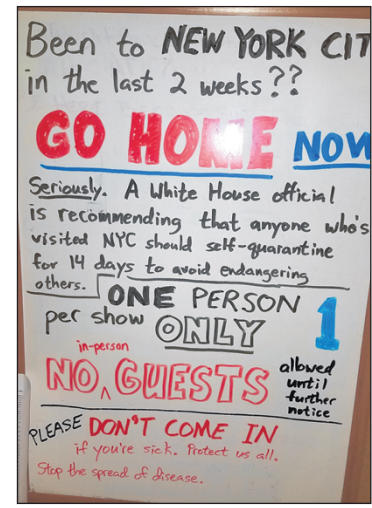 Been to NEW YORK CIT
in the last 2 weeks??
GO HOME NOW
Seriously. A White House official
is recommending that anyone who's
visited NYC should self-quarantine
for 14 days to avoid endangering
others.
ONE PERSON
per show ONLY 1
in-person
NO ^ GUESTS allowed
until
further
notice
PLEASE DON'T COME IN
if you're sick. Protect us all.
Stop the spread of disease.